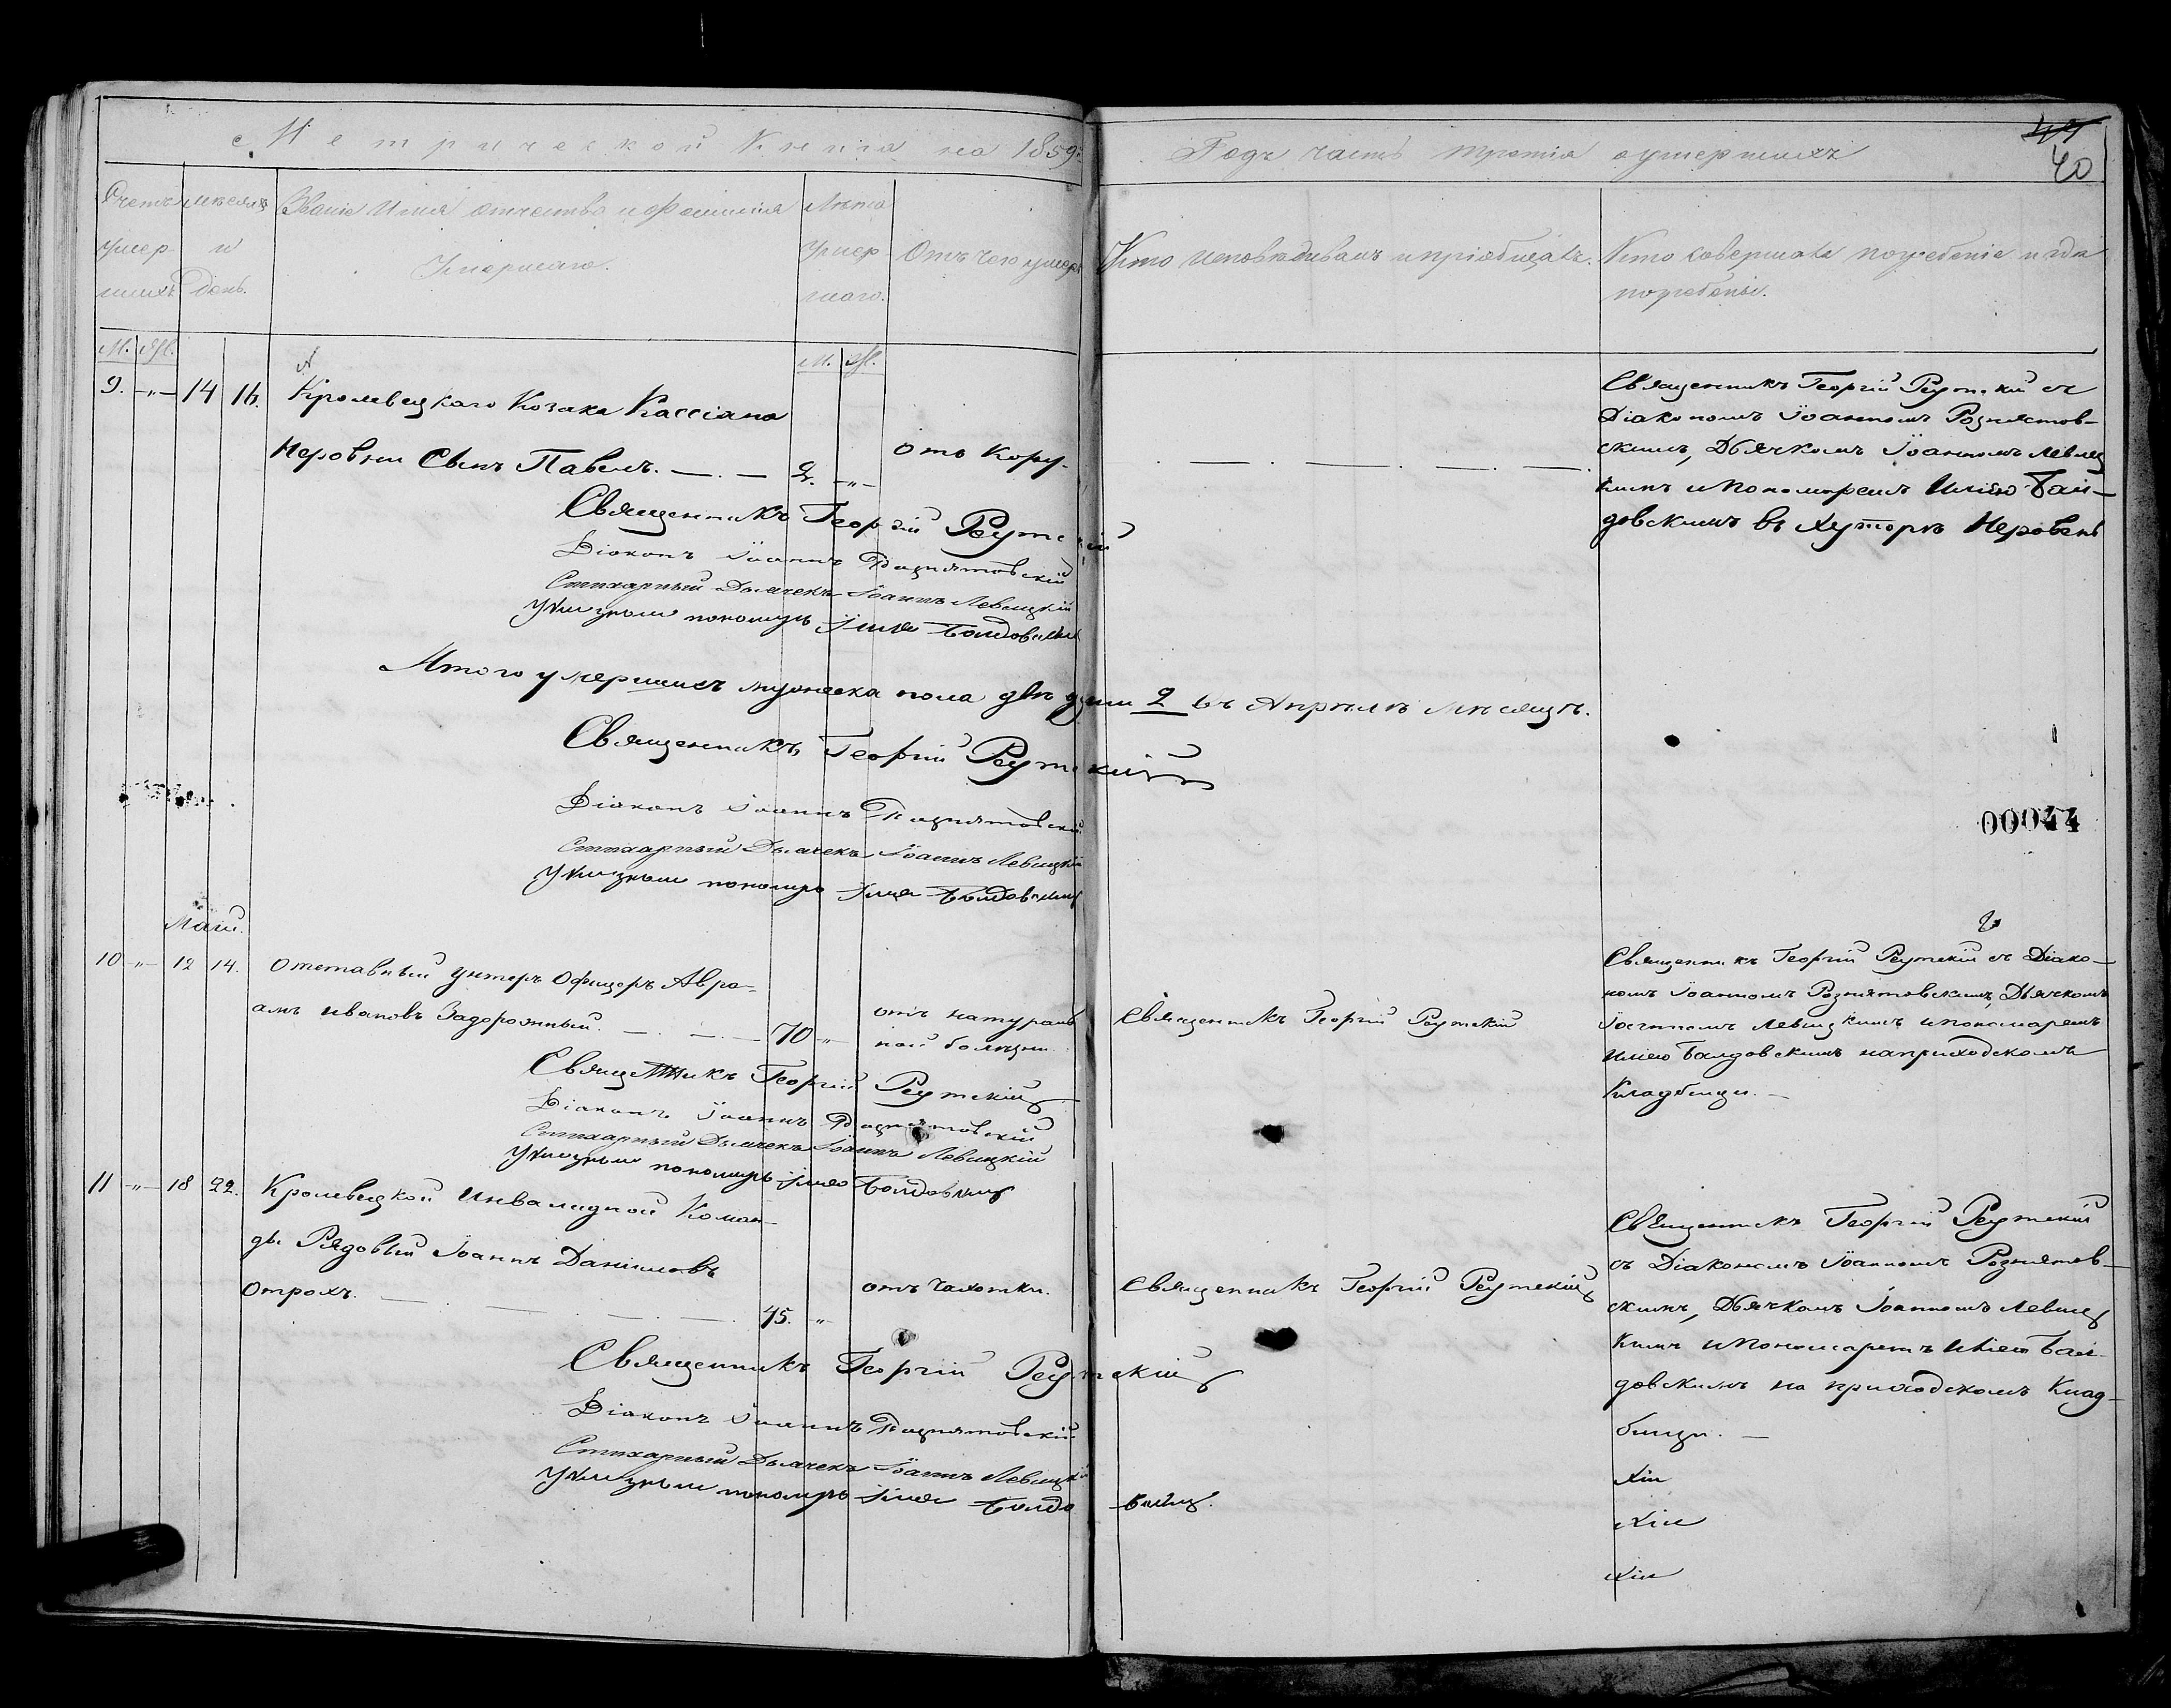 Метрической Книги на 1859й
Годъ часть третія о умершихъ
40
Счетъ умершихъ
мѣсяцъ и день.
Званіе Имя отчество и фамилія Умершаго.
Лѣта умершаго.
Отъ чего умеръ
Кто исповѣдывалъ и пріобщалъ.
Кто совершалъ погребеніе и гдѣ погребены.
М. Ж.
М. Ж.
9. -"- 14 16.
Кролевецкаго Козака Кассіана
Неровни Сынъ Павелъ. 2. -"-
отъ кору.
Священникъ Георгій Реутскій съ
Діакономъ Іоанномъ Рознятов-
скимъ, Дьячкомъ Іоанномъ Левиц
кимъ и Пономаремъ Иліею Бал-
довскимъ въ Хуторѣ Неровень
Священникъ Георгій Реутскій
Діаконъ Іоаннъ Рознятовскій
Стихарный Дьячекъ Іоаннъ Левицкій
Указный пономарь Илія Балдовскій
Итого умершихъ мужеска пола двѣ души 2 въ Апрѣлѣ мѣсяцѣ.
Священникъ Георгій Реутскій
Діаконъ Іоаннъ Рознятовскій
Стихарный Дьячекъ Іоаннъ Левицкій
Указный пономарь Илія Балдовскій
00044
Маій.
10 -"- 12 14.
Отставный унтеръ Офицеръ Авра-
амъ Ивановъ Задорожный. 70 -"-
отъ натураль
ной болѣзни
Священникъ Георгій Реутскій
Священникъ Георгій Реутскій съ Діако-
номъ Іоанномъ Рознятовскимъ, Дьячкомъ
Іоанномъ Левицкимъ и пономаремъ
Иліею Балдовскимъ на приходскомъ
Кладбищи.
Священникъ Георгій Реутскій
Діаконъ Іоаннъ Рознятовскій
Стихарный Дьячекъ Іоаннъ Левицкій
Указный пономарь Илія Балдовскій
11 -"- 18 22.
Кролевецкой Инвалидной Коман-
ды Рядовый Іоаннъ Даніиловъ
Отрохъ. 45. -"-
отъ Чахотки.
Священникъ Георгій Реутскій
Священникъ Георгій Реутскій
съ Діакономъ Іоанномъ Рознятов-
скимъ, Дьячкомъ Іоанномъ Левиц
кимъ и Пономаремъ Иліею Бал-
довскимъ на приходскомъ Клад-
бищи.
Священникъ Георгій Реутскій
Діаконъ Іоаннъ Рознятовскій
Стихарный Дьячекъ Іоаннъ Левицкій
Указный пономарь Илія Балдовскій